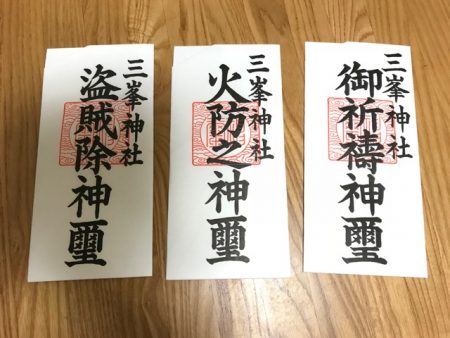 三峯神社
盗賊除神璽
三峯神社
火防之神璽
三峯神社
御祈禱神璽